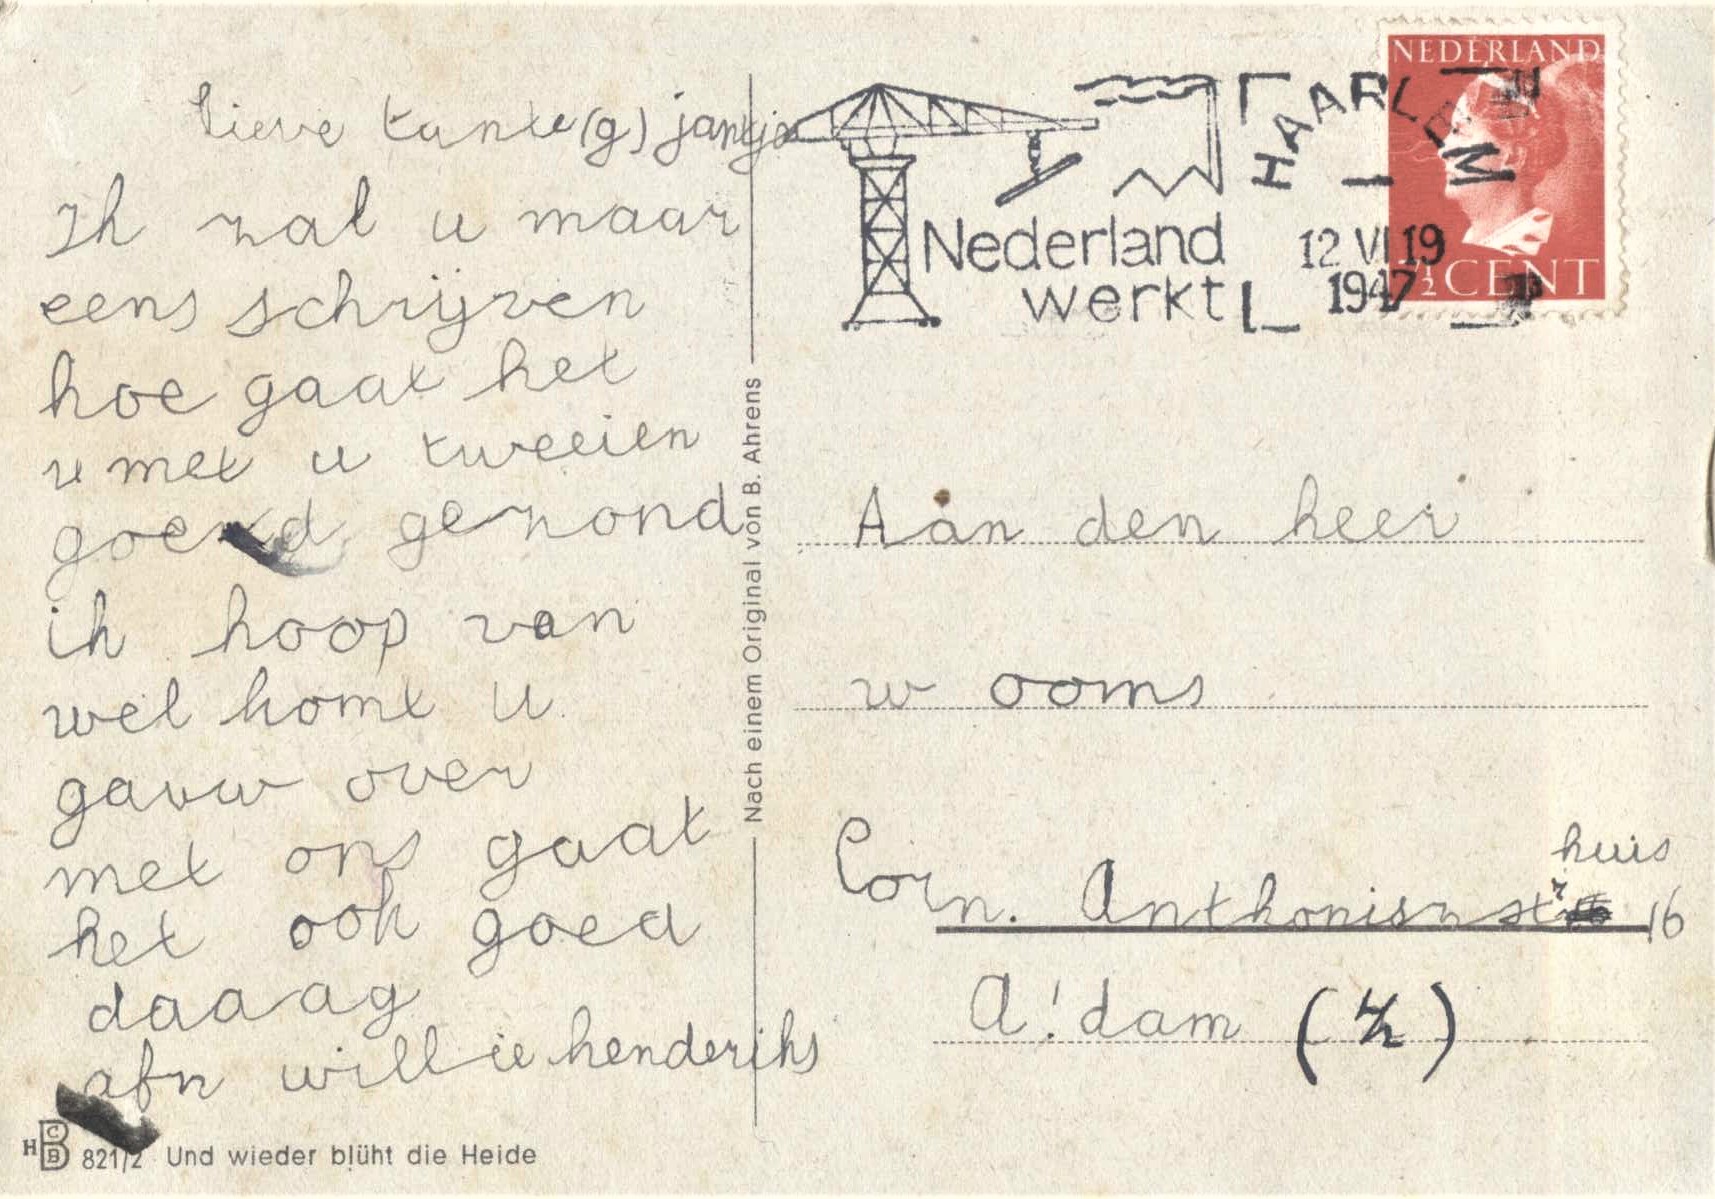 lieve tante (g) jantje
Ik zal u maar
eens schrijven
hoe gaat het
u met u tweeien
goed gezond
ik hoop van
wel komt u
gauw over
met ons gaat
het ook goed
daaag
afz willie henderiks
HCBB 821/2 Und wieder blüht die Heide
Nach einem Original von B. Ahrens
Nederland
werkt
HAARLEM
12 VI 19
1947
NEDERLAND
7½ CENT
Aan den heer
w ooms
huis
Corn. Anthonisz str 16
A'dam (Z)